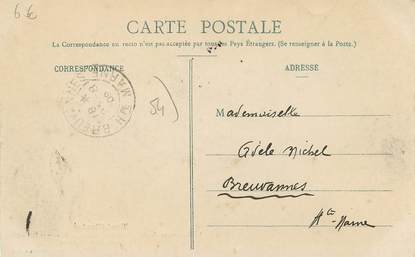 6 €
CARTE POSTALE
La Correspondance au recto n'est pas acceptée par tous les Pays Étrangers. (Se renseigner à la Poste.)
CORRESPONDANCE
ADRESSE
54
Mademoiselle
Adèle Michel
Breuvannes
Hte-Marne